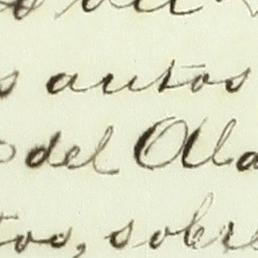 s autos
o del Ala
tos, sobre